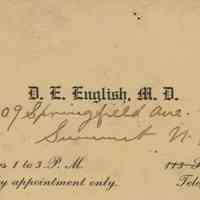 D. E. English, M. D.
09 Springfield Ave.
Summit N.
s 1 to 3 P. M.
y appointment only.
113